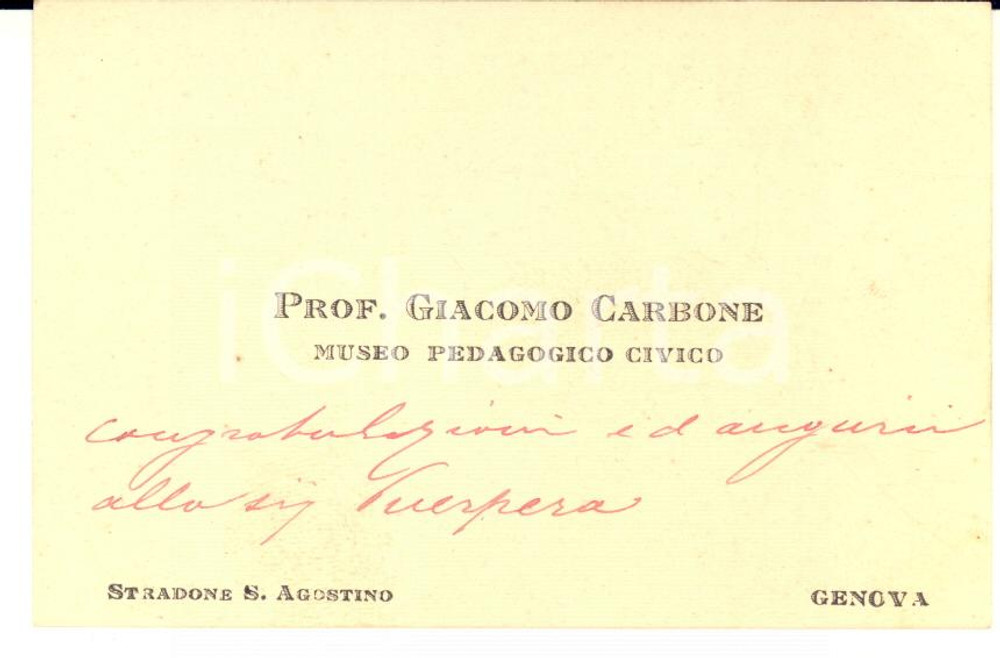 PROF. GIACOMO CARBONE
MUSEO PEDAGOGICO CIVICO
iCharta
congratulazioni ed augurii
alla sig Puerpera
STRADONE S. AGOSTINO
GENOVA